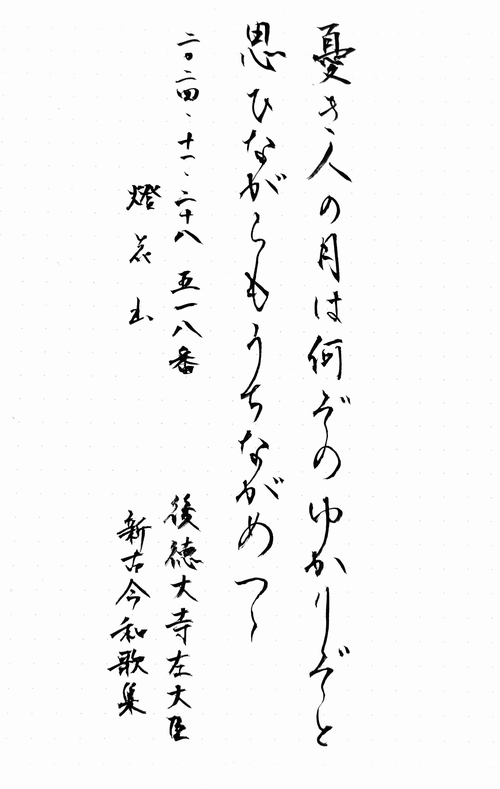 憂き人の月は何ぞのゆかりぞと
思ひながらもうちながめつゝ
二〇二四、十一、二十八 五一八番
後徳大寺左大臣
燈花山
新古今和歌集